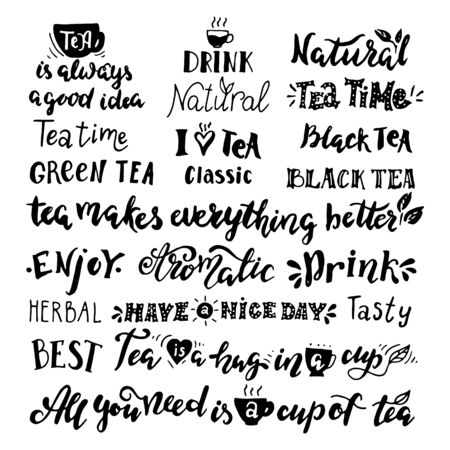 TEA
is always
a good idea
DRINK
Natural
Natural
TEA TIME
Tea time
I TEA
Black TEA
GREEN TEA
Classic
BLACK TEA
tea makes everything better
ENJOY
Aromatic
Drink
HERBAL
HAVE A NICE DAY
Tasty
BEST
Tea is a hug in a cup
All you need is a cup of tea